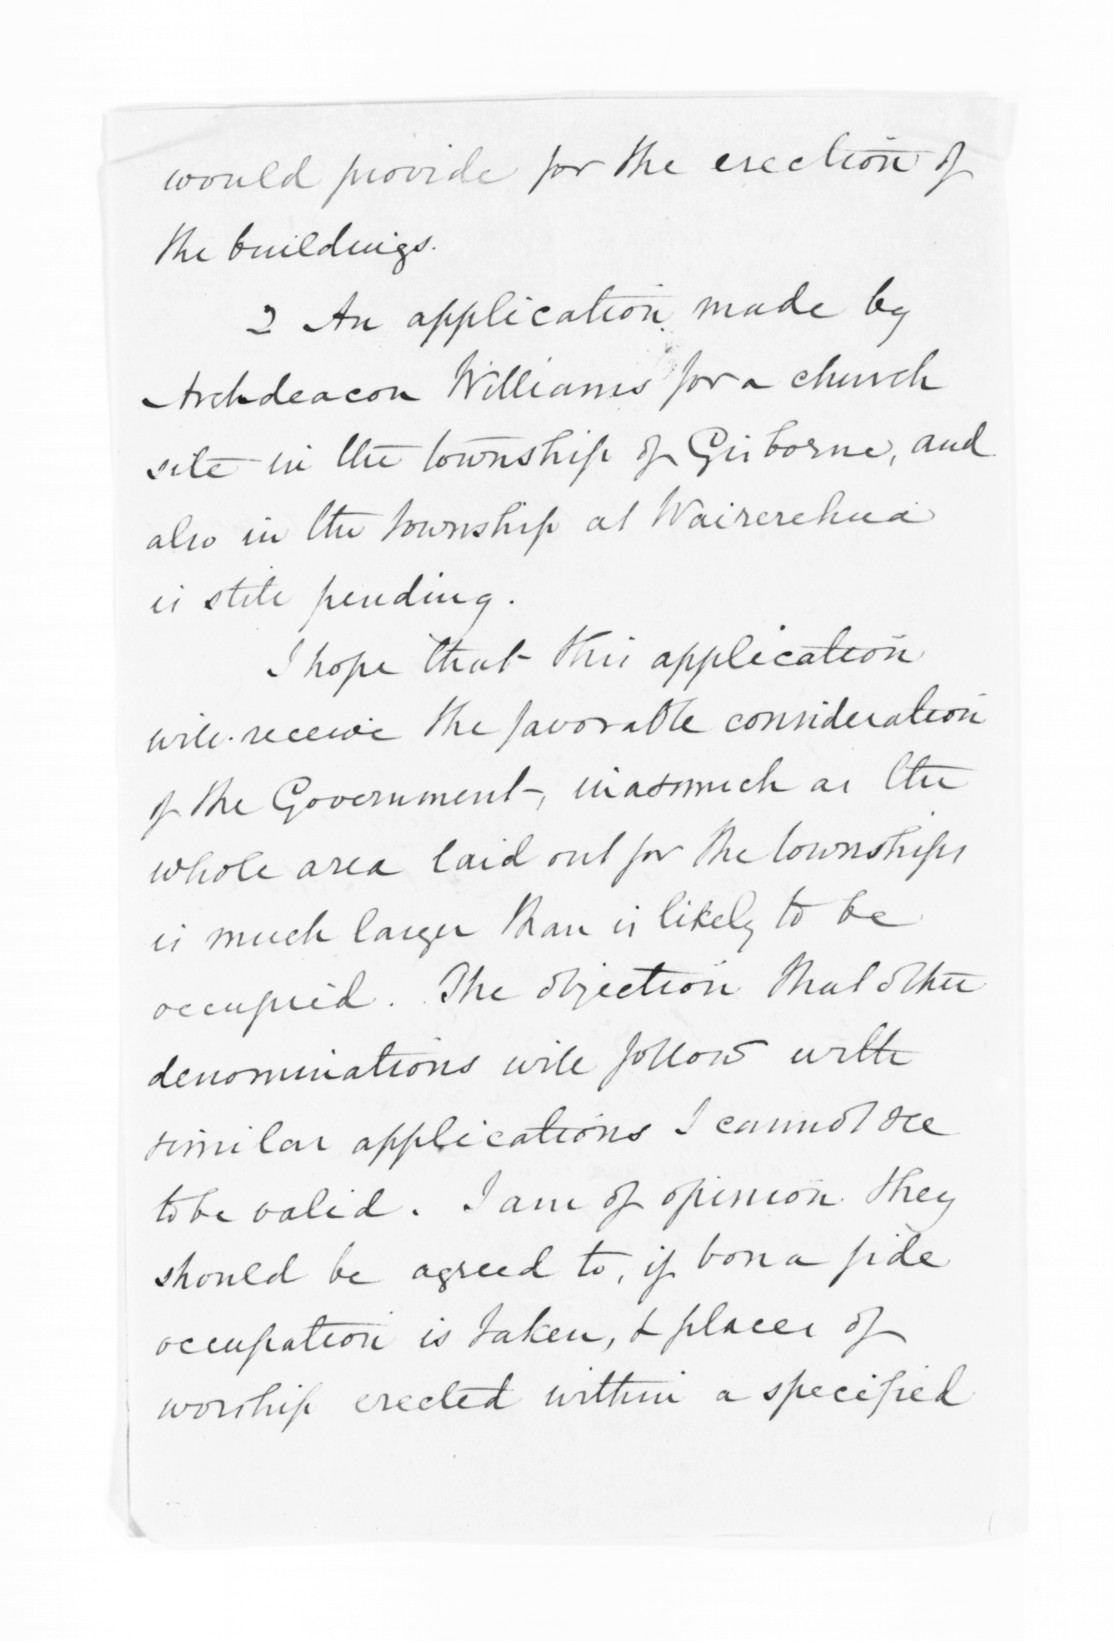 would provide for the erection of
the buildings.
2 An application made by
Archdeacon Williams for a church
site in the township of Gisborne, and
also in the township at Wairerehua
is still pending.
I hope that this application
will receive the favorable consideration
of the Government, inasmuch as the
whole area laid out for the townships
is much larger than is likely to be
occupied. The objection that other
denominations will follow with
similar applications I cannot see
to be valid. I am of opinion they
should be agreed to, if bona fide
occupation is taken, & places of
worship erected within a specified